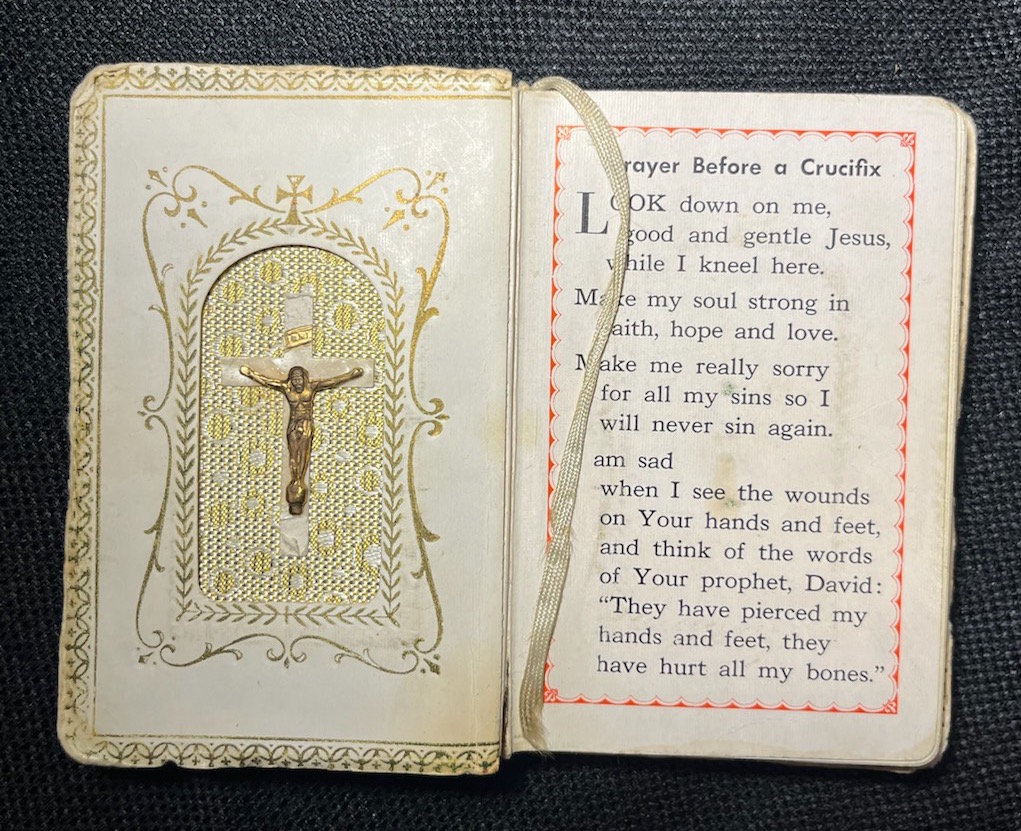 Prayer Before a Crucifix
LOOK down on me,
good and gentle Jesus,
while I kneel here.
Make my soul strong in
faith, hope and love.
Make me really sorry
for all my sins so I
will never sin again.
am sad
when I see the wounds
on Your hands and feet,
and think of the words
of Your prophet, David:
“They have pierced my
hands and feet, they
have hurt all my bones.”